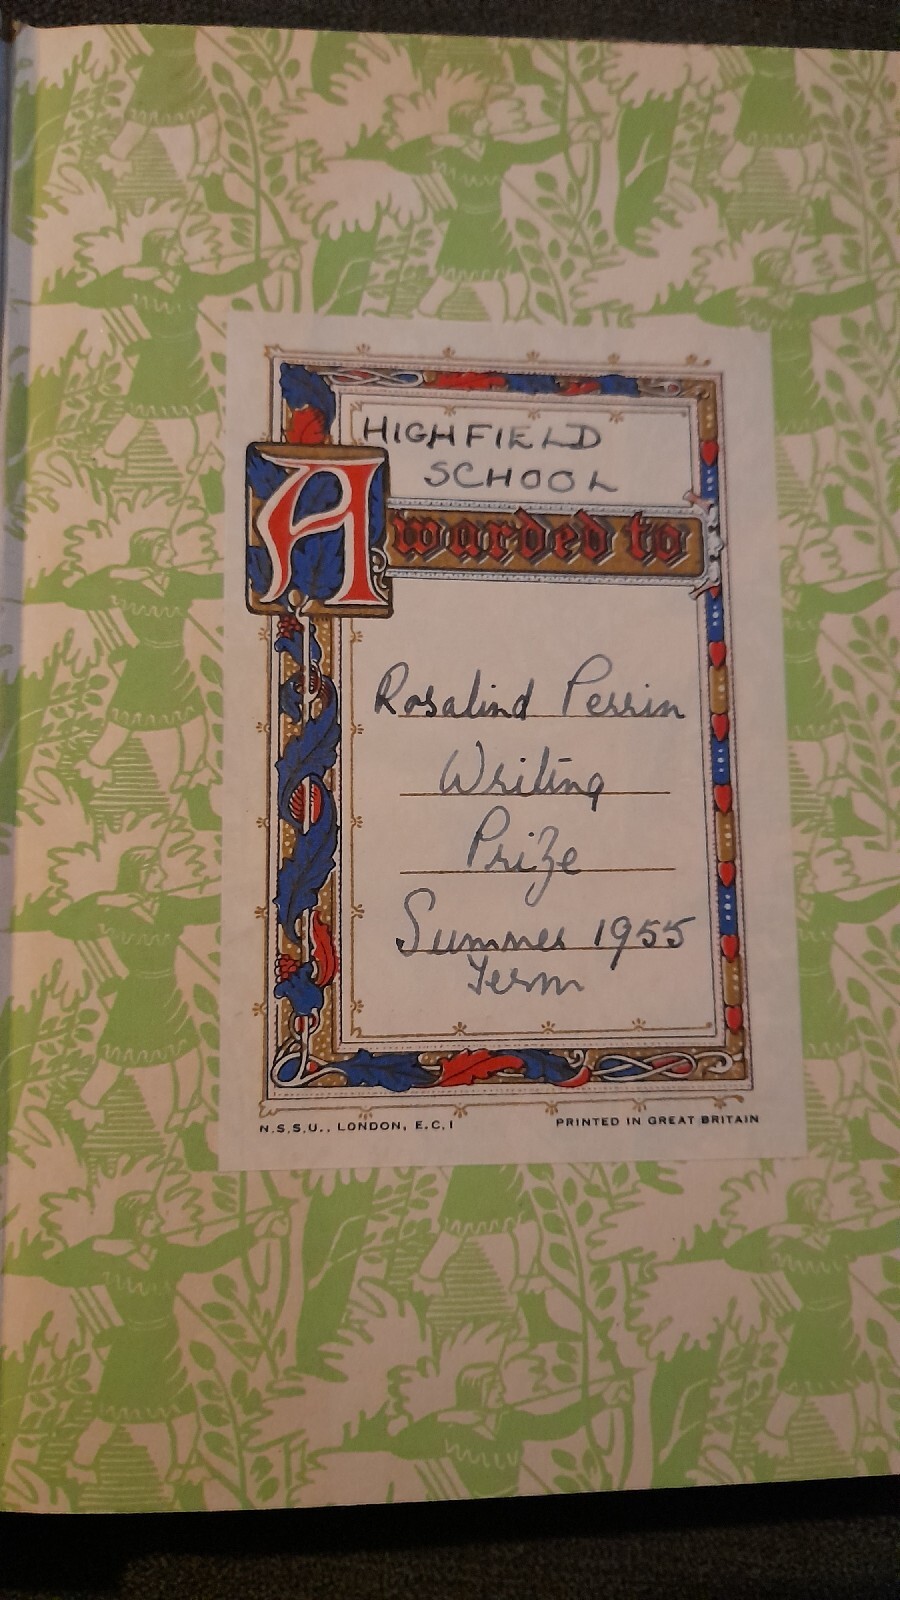 HIGHFIELD
SCHOOL
Awarded to
Rosalind Perrin
Writing
Prize
Summer 1955
Term
N.S.S.U., LONDON, E.C.1
PRINTED IN GREAT BRITAIN